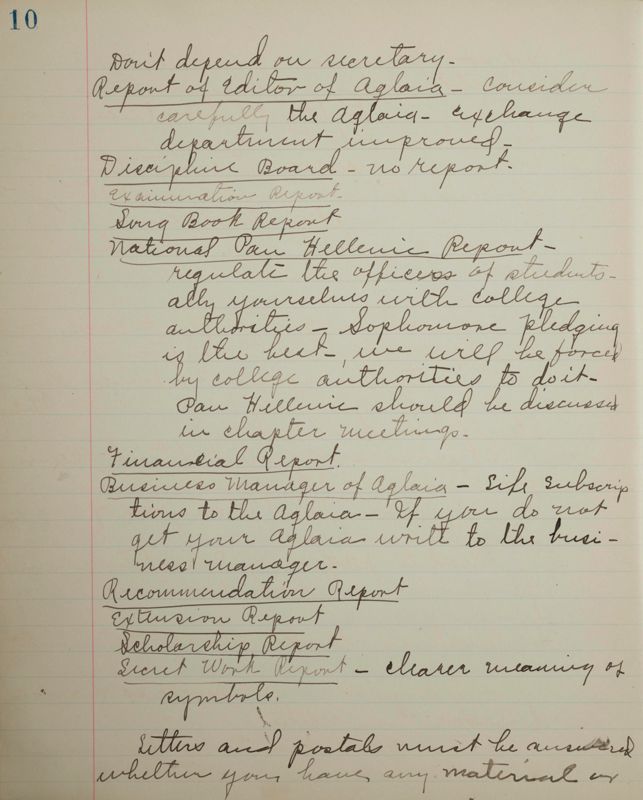 10
Don't depend on secretary-
Report of Editor of Aglaia - consider
carefully the Aglaia - exchange
department improved-
Discipline Board - no report.
Examination Report-
Song Book Report
National Pan Hellenic Report -
regulate the officers of students-
ally yourselves with college
authorities - Sophomore pledging
is the best -, we will be forced
by college authorities to do it-
Pan Hellenic should be discussed
in chapter meetings.
Financial Report.
Business Manager of Aglaia - Life Subscrip
tions to the Aglaia - If you do not
get your Aglaia write to the busi-
ness manager.
Recommendation Report
Extension Report
Scholarship Report
Secret Work Report - clearer meaning of
symbols.
Letters and postals must be answered
whether you have any material or